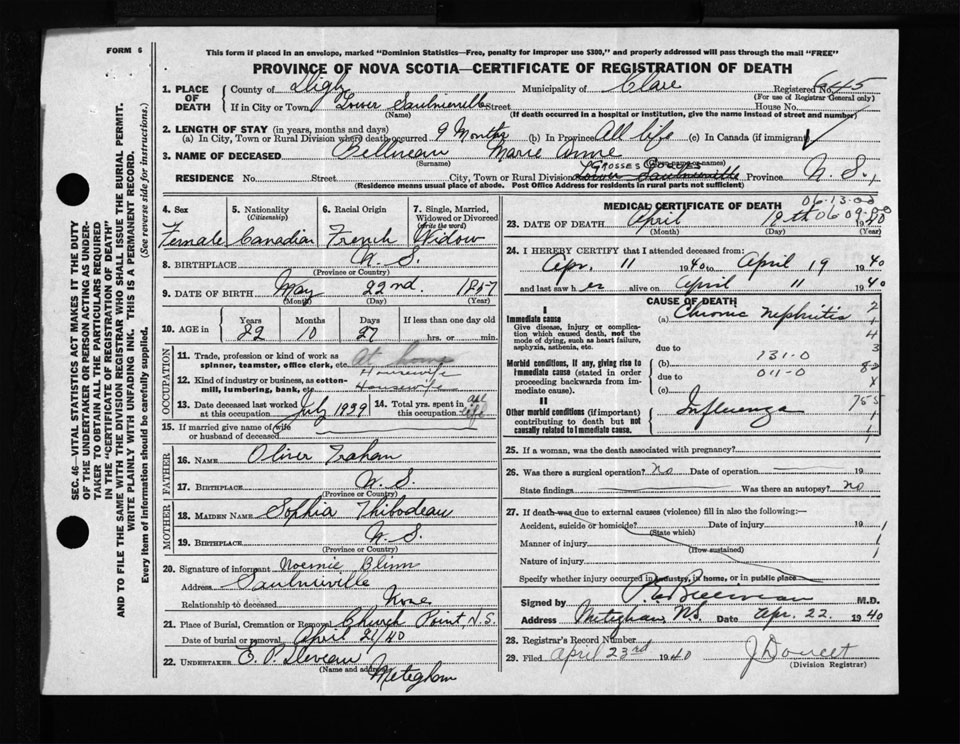 FORM 6
This form if placed in an envelope, marked "Dominion Statistics—Free, penalty for improper use $300," and properly addressed will pass through the mail "FREE"
PROVINCE OF NOVA SCOTIA—CERTIFICATE OF REGISTRATION OF DEATH
SEC. 46—VITAL STATISTICS ACT MAKES IT THE DUTY
OF THE UNDERTAKER OR PERSON ACTING AS UNDER-
TAKER TO OBTAIN ALL THE PARTICULARS REQUIRED
IN THE "CERTIFICATE OF REGISTRATION OF DEATH"
AND TO FILE THE SAME WITH THE DIVISION REGISTRAR WHO SHALL ISSUE THE BURIAL PERMIT.
WRITE PLAINLY WITH UNFADING INK. THIS IS A PERMANENT RECORD.
Every item of information should be carefully supplied. (See reverse side for instructions.)
1. PLACE OF DEATH County of Digby Municipality of Clare Registered No. 645
(For use of Registrar General only)
If in City or Town Lower Saulnierville Street House No.
(Name) (If death occurred in a hospital or institution, give the name instead of street and number)
2. LENGTH OF STAY (in years, months and days)
(a) In City, Town or Rural Division where death occurred 9 Months (b) In Province All life (c) In Canada (if immigrant)
3. NAME OF DECEASED Belliveau Marie Anne
(Surname) names)
GROSSES COQUES
RESIDENCE No. Street City, Town or Rural Division Lower Saulnierville Province N. S.
(Residence means usual place of abode. Post Office Address for residents in rural parts not sufficient)
4. Sex 5. Nationality (Citizenship) 6. Racial Origin 7. Single, Married, Widowed or Divorced (write the word)
Female Canadian French Widow
8. BIRTHPLACE N. S.
(Province or Country)
9. DATE OF BIRTH May 22nd. 1857
(Month) (Day) (Year)
10. AGE in Years Months Days If less than one day old
82 10 27 hrs. or min.
OCCUPATION
11. Trade, profession or kind of work as spinner, teamster, office clerk, etc. At home
Housewife
12. Kind of industry or business, as cotton-mill, lumbering, bank, etc. Housewife
13. Date deceased last worked at this occupation July 1939 14. Total yrs. spent in this occupation all life
15. If married give name of wife or husband of deceased
FATHER
16. NAME Oliver Trahan
17. BIRTHPLACE N. S.
(Province or Country)
MOTHER
18. MAIDEN NAME Sophia Thibodeau
19. BIRTHPLACE N. S.
(Province or Country)
20. Signature of informant Noemie Blinn
Address Saulnierville
Relationship to deceased None
21. Place of Burial, Cremation or Removal Church Point, N.S.
Date of burial or removal April 21/40
22. UNDERTAKER E. P. Deveau
(Name and address) Meteghan
MEDICAL CERTIFICATE OF DEATH
06-13-00
06 09-00
23. DATE OF DEATH April 19th 1940
(Month) (Day) (Year)
24. I HEREBY CERTIFY that I attended deceased from:
Apr. 11 1940 to April 19 1940
and last saw er alive on April 11 1940
CAUSE OF DEATH
I
Immediate cause (a) Chronic Nephritis
Give disease, injury or complication which caused death, not the mode of dying, such as heart failure, asphyxia, asthenia, etc.
due to
Morbid conditions, if any, giving rise to immediate cause (stated in order proceeding backwards from immediate cause).
(b) 131-0
due to 011-0
(c)
II
Other morbid conditions (if important) contributing to death but not causally related to immediate cause. Influenza
25. If a woman, was the death associated with pregnancy?
26. Was there a surgical operation? No Date of operation 19
State findings Was there an autopsy? No
27. If death was due to external causes (violence) fill in also the following:—
Accident, suicide or homicide? Date of injury 19
(State which)
Manner of injury
(How sustained)
Nature of injury
Specify whether injury occurred in industry, in home, or in public place
Signed by M.D.
Address Meteghan, N.S. Date Apr. 22 1940
28. Registrar's Record Number
29. Filed April 23rd 1940 J Doucet
(Division Registrar)